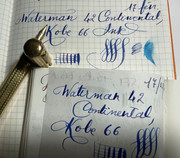 17/
Waterman 42 Continental
Kobe 66 Ink
17/
Waterman 42
Continental
Kobe 66